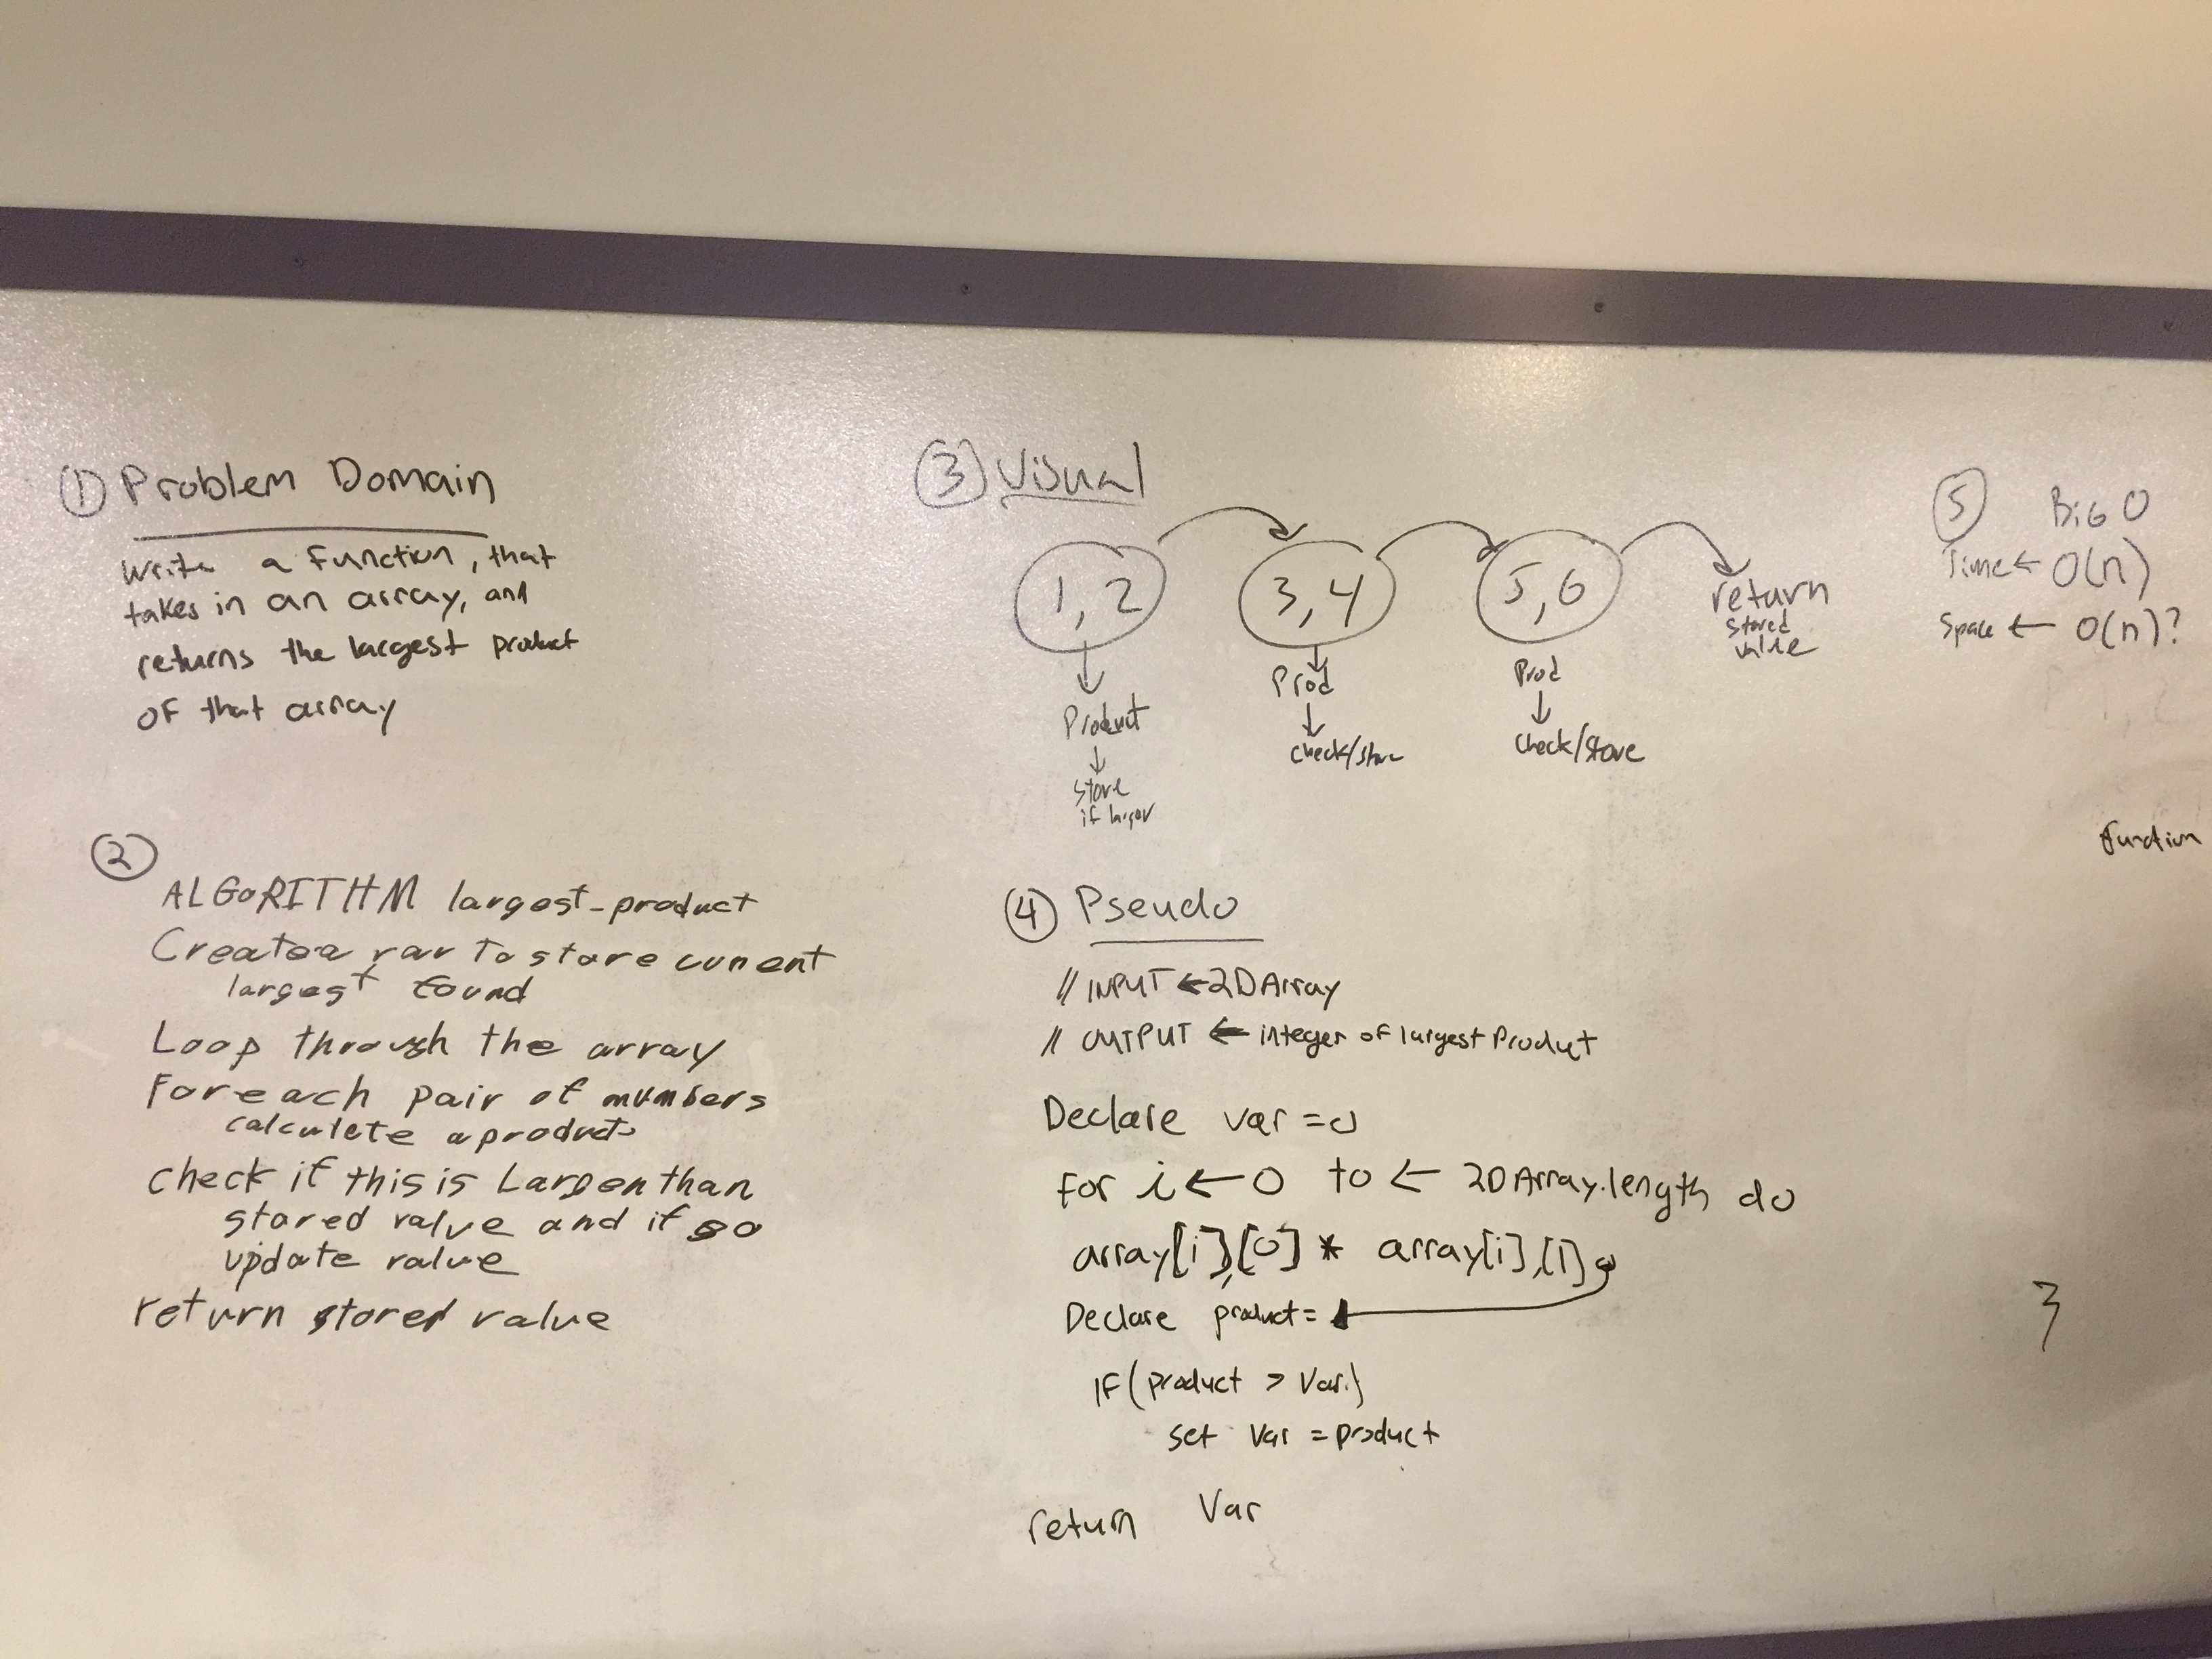 ① Problem Domain
Write a function, that
takes in an array, and
returns the largest product
of that array
②
ALGORITHM largest-product
Create a var to store current
largest found
Loop through the array
For each pair of numbers
calculate a product
check if this is Larger than
stored value and if so
update value
return stored value
③ Visual
1, 2
3, 4
5, 6
return
stored
value
Product
store
if larger
Prod
check/store
Prod
check/store
④ Pseudo
// INPUT ← 2DArray
// OUTPUT ← integer of largest Product
Declare var = 0
for i ← 0 to ← 2DArray.length do
array[i],[0] * array[i],[1]
Declare product =
IF (product > Var)
set Var = product
return Var
⑤ BiG O
Time ← O(n)
Space ← O(n)?
function
}